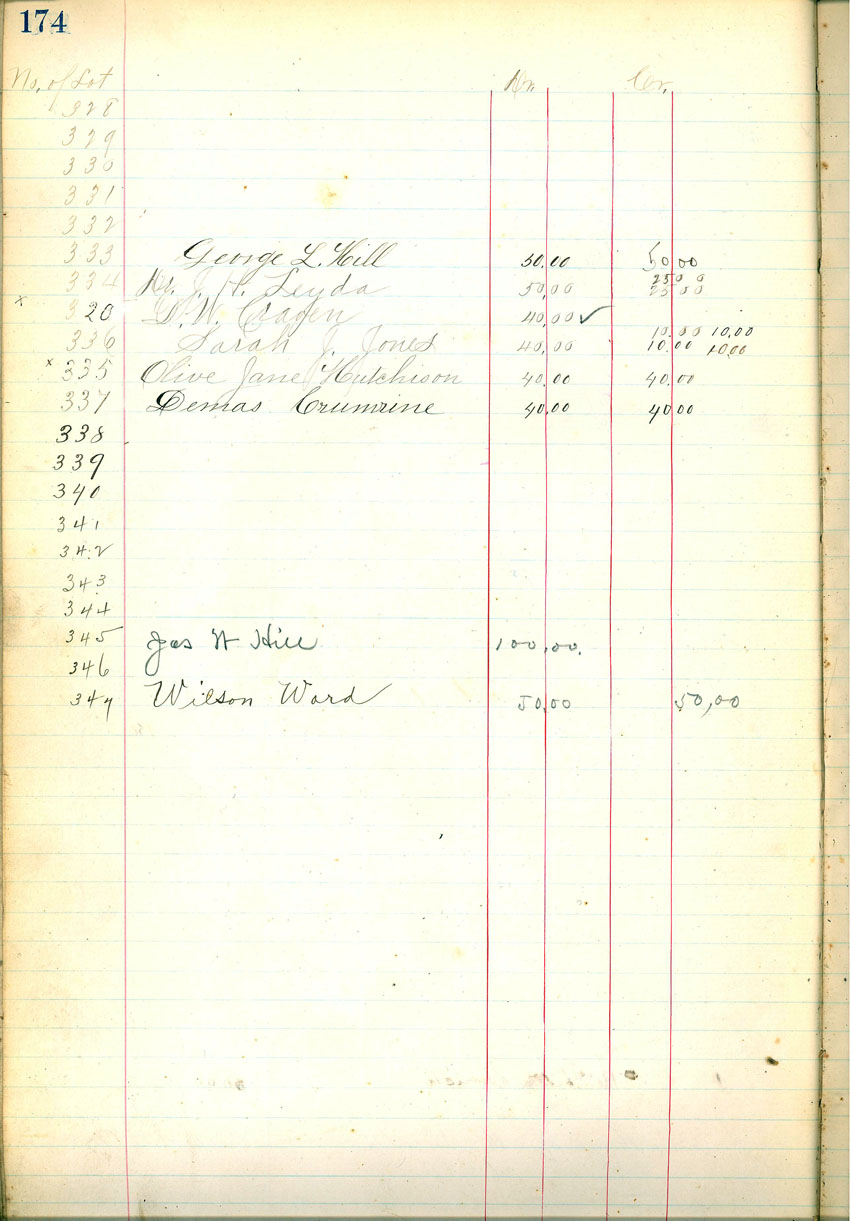 174
No. of Lot Dr. Cr.
328
329
330
331
332
333 George L. Hill 50,00 50 00
334 Dr. J. H. Leyda 50,00 250 0 25 00
x 320 D. W. Cragen 40,00 ✓
336 Sarah J. Jones 40,00 10.00 10,00 10.00 10,00
x 335 Olive Jane Hutchison 40,00 40,00
337 Demas Crumrine 40,00 40 00
338
339
340
341
342
343
344
345 Jas W Hill 100,00.
346
347 Wilson Ward 50,00 50,00